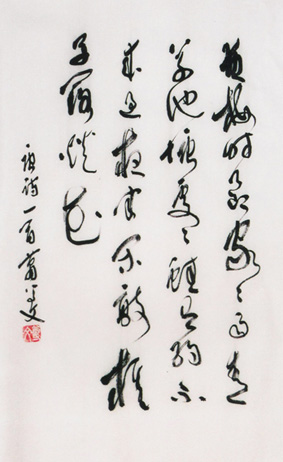 黄梅时节家々雨青
草池塘处々蛙有约不
来过夜半闲敲棋
子落灯花
唐诗一首